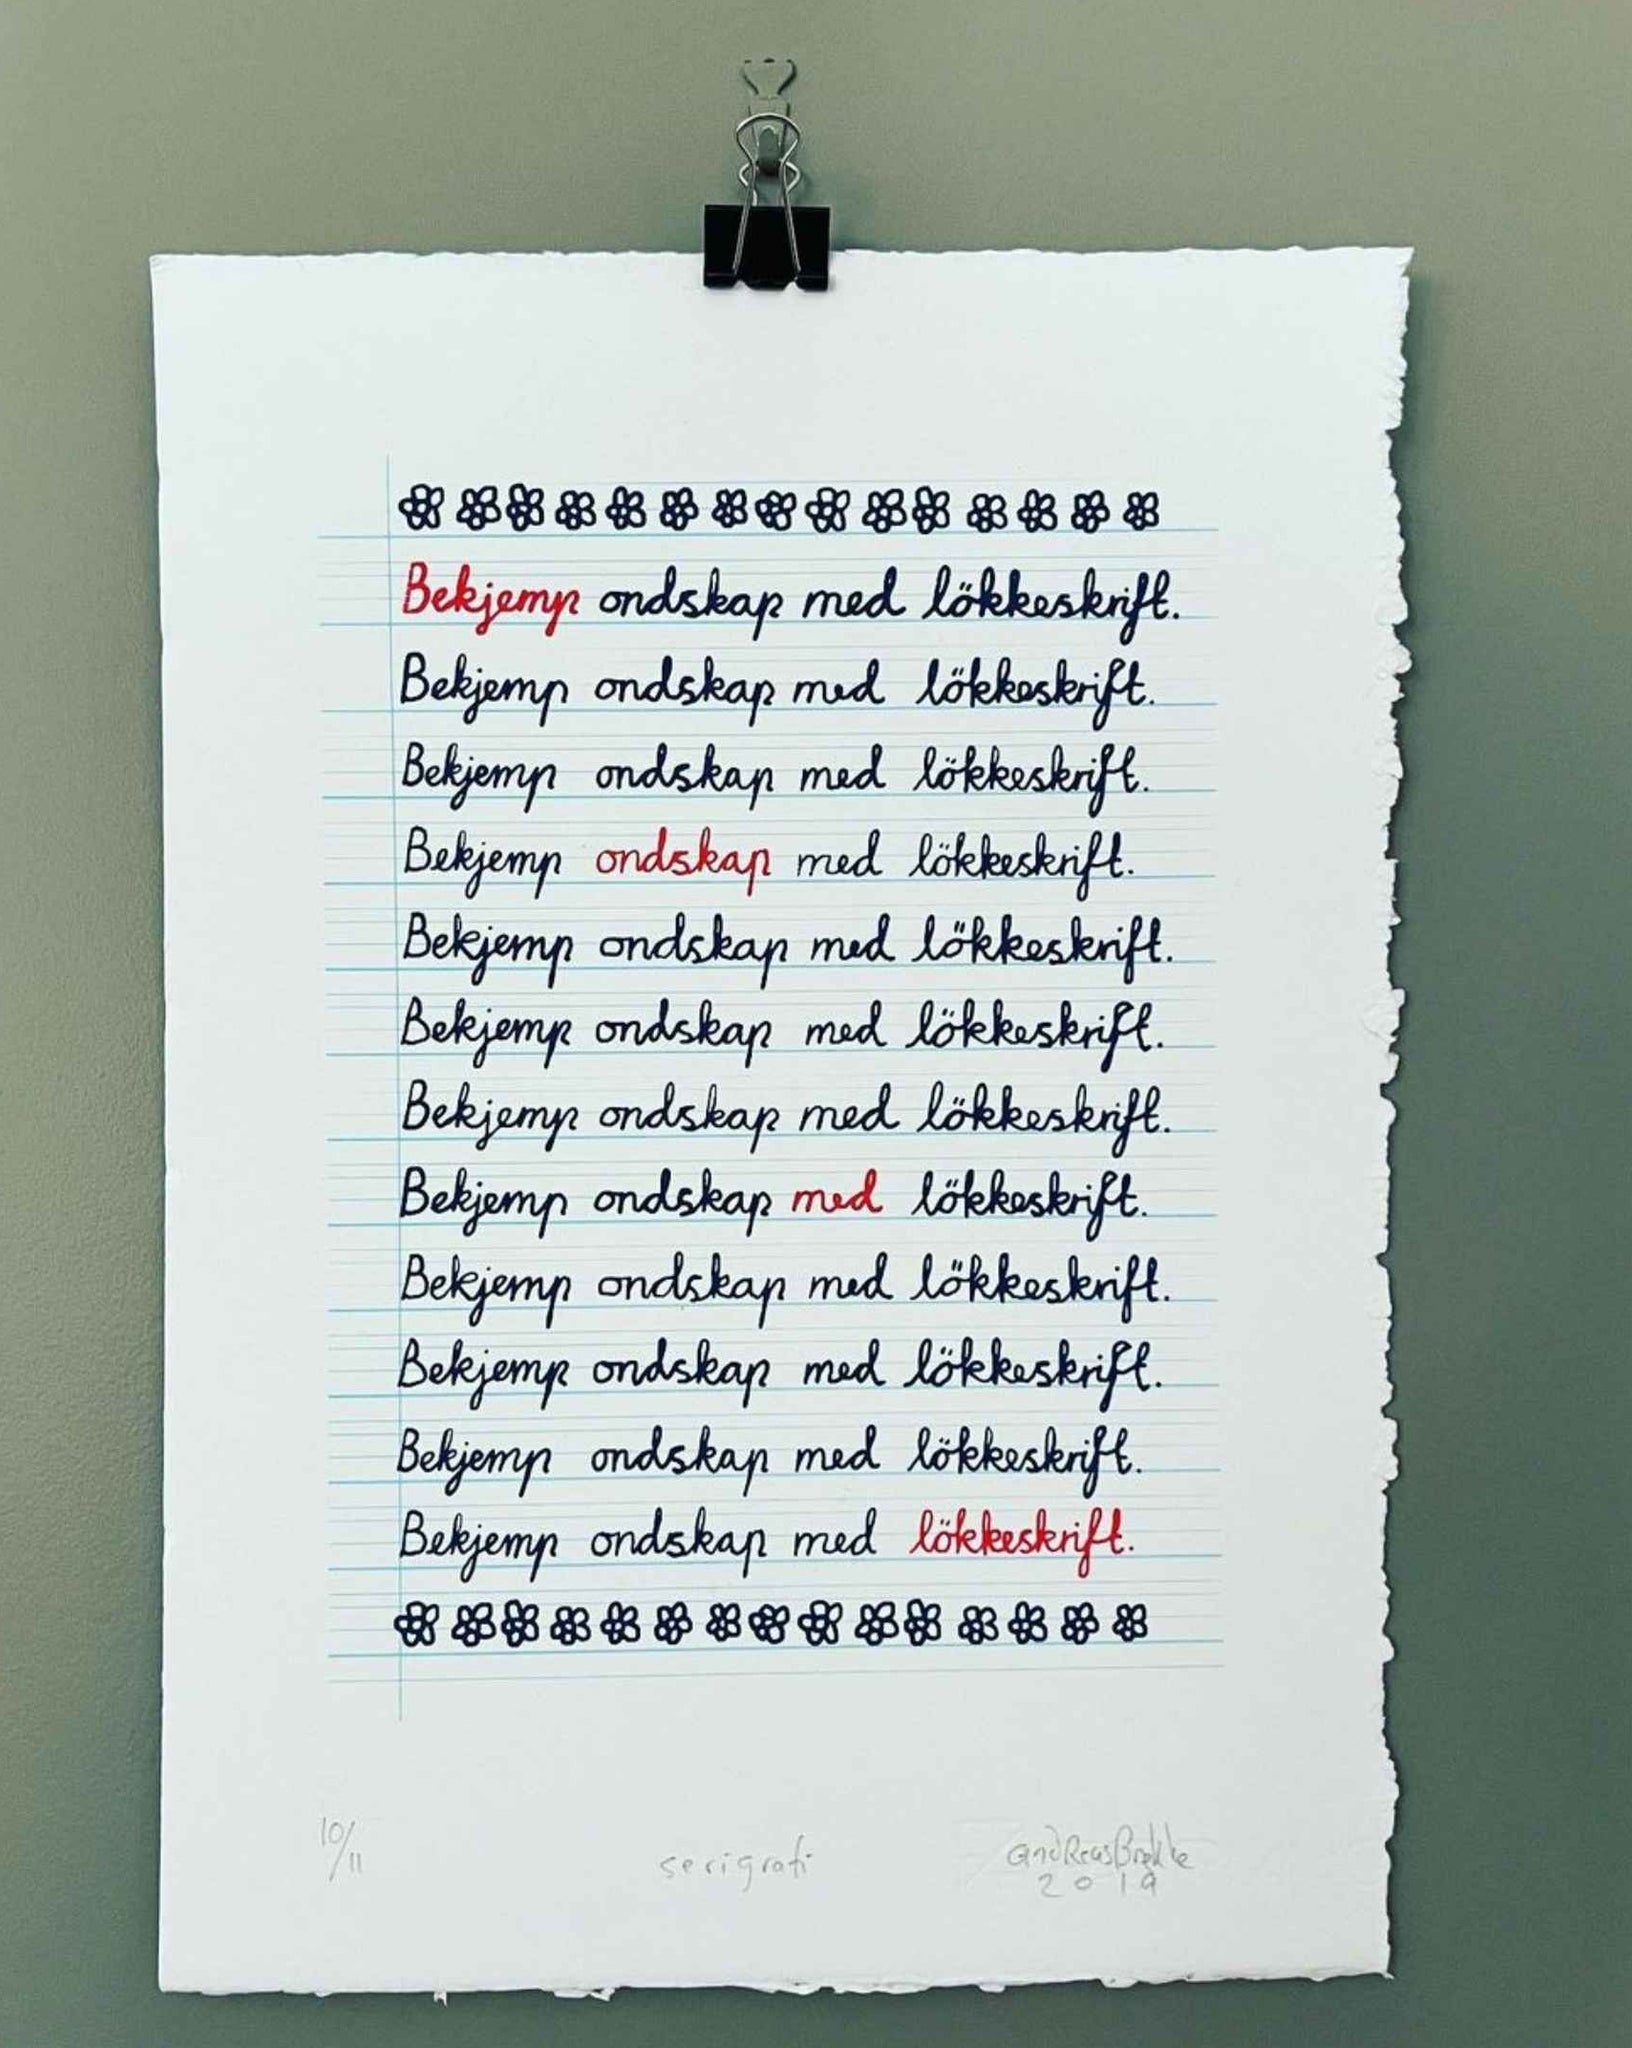 Bekjemp ondskap med lökkeskrift.
Bekjemp ondskap med lökkeskrift.
Bekjemp ondskap med lökkeskrift.
Bekjemp ondskap med lökkeskrift.
Bekjemp ondskap med lökkeskrift.
Bekjemp ondskap med lökkeskrift.
Bekjemp ondskap med lökkeskrift.
Bekjemp ondskap med lökkeskrift.
Bekjemp ondskap med lökkeskrift.
Bekjemp ondskap med lökkeskrift.
Bekjemp ondskap med lökkeskrift.
Bekjemp ondskap med lökkeskrift.
10/11 serigrafi andReasBrekke
2019